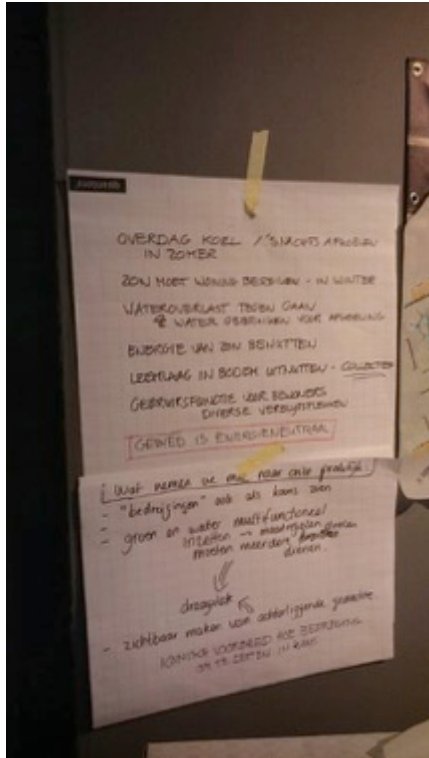 OVERDAG KOEL / 'S NACHTS AFKOELEN
IN ZOMER
ZON MOET WONING BEREIKEN - IN WINTER
WATEROVERLAST TEGEN GAAN
& WATER GEBRUIKEN VOOR AFKOELING
ENERGIE VAN ZON BENUTTEN
LEEMLAAG IN BODEM UITNUTTEN - COLLECTOR
GEBRUIKSFUNCTIE VOOR BEWONERS
DIVERSE VERBLIJFSPLEKKEN
GEBIED IS ENERGIENEUTRAAL
Wat nemen we mee naar onze praktijk?
- "bedreigingen" ook als kans zien
- groen en water multifunctioneel
inzetten → maatregelen
moeten meerdere doelen
dienen.
draagvlak
- zichtbaar maken van achterliggende gedachte
ICONISCH VOORBEELD HOE BEDREIGING
OM TE ZETTEN IN KANS